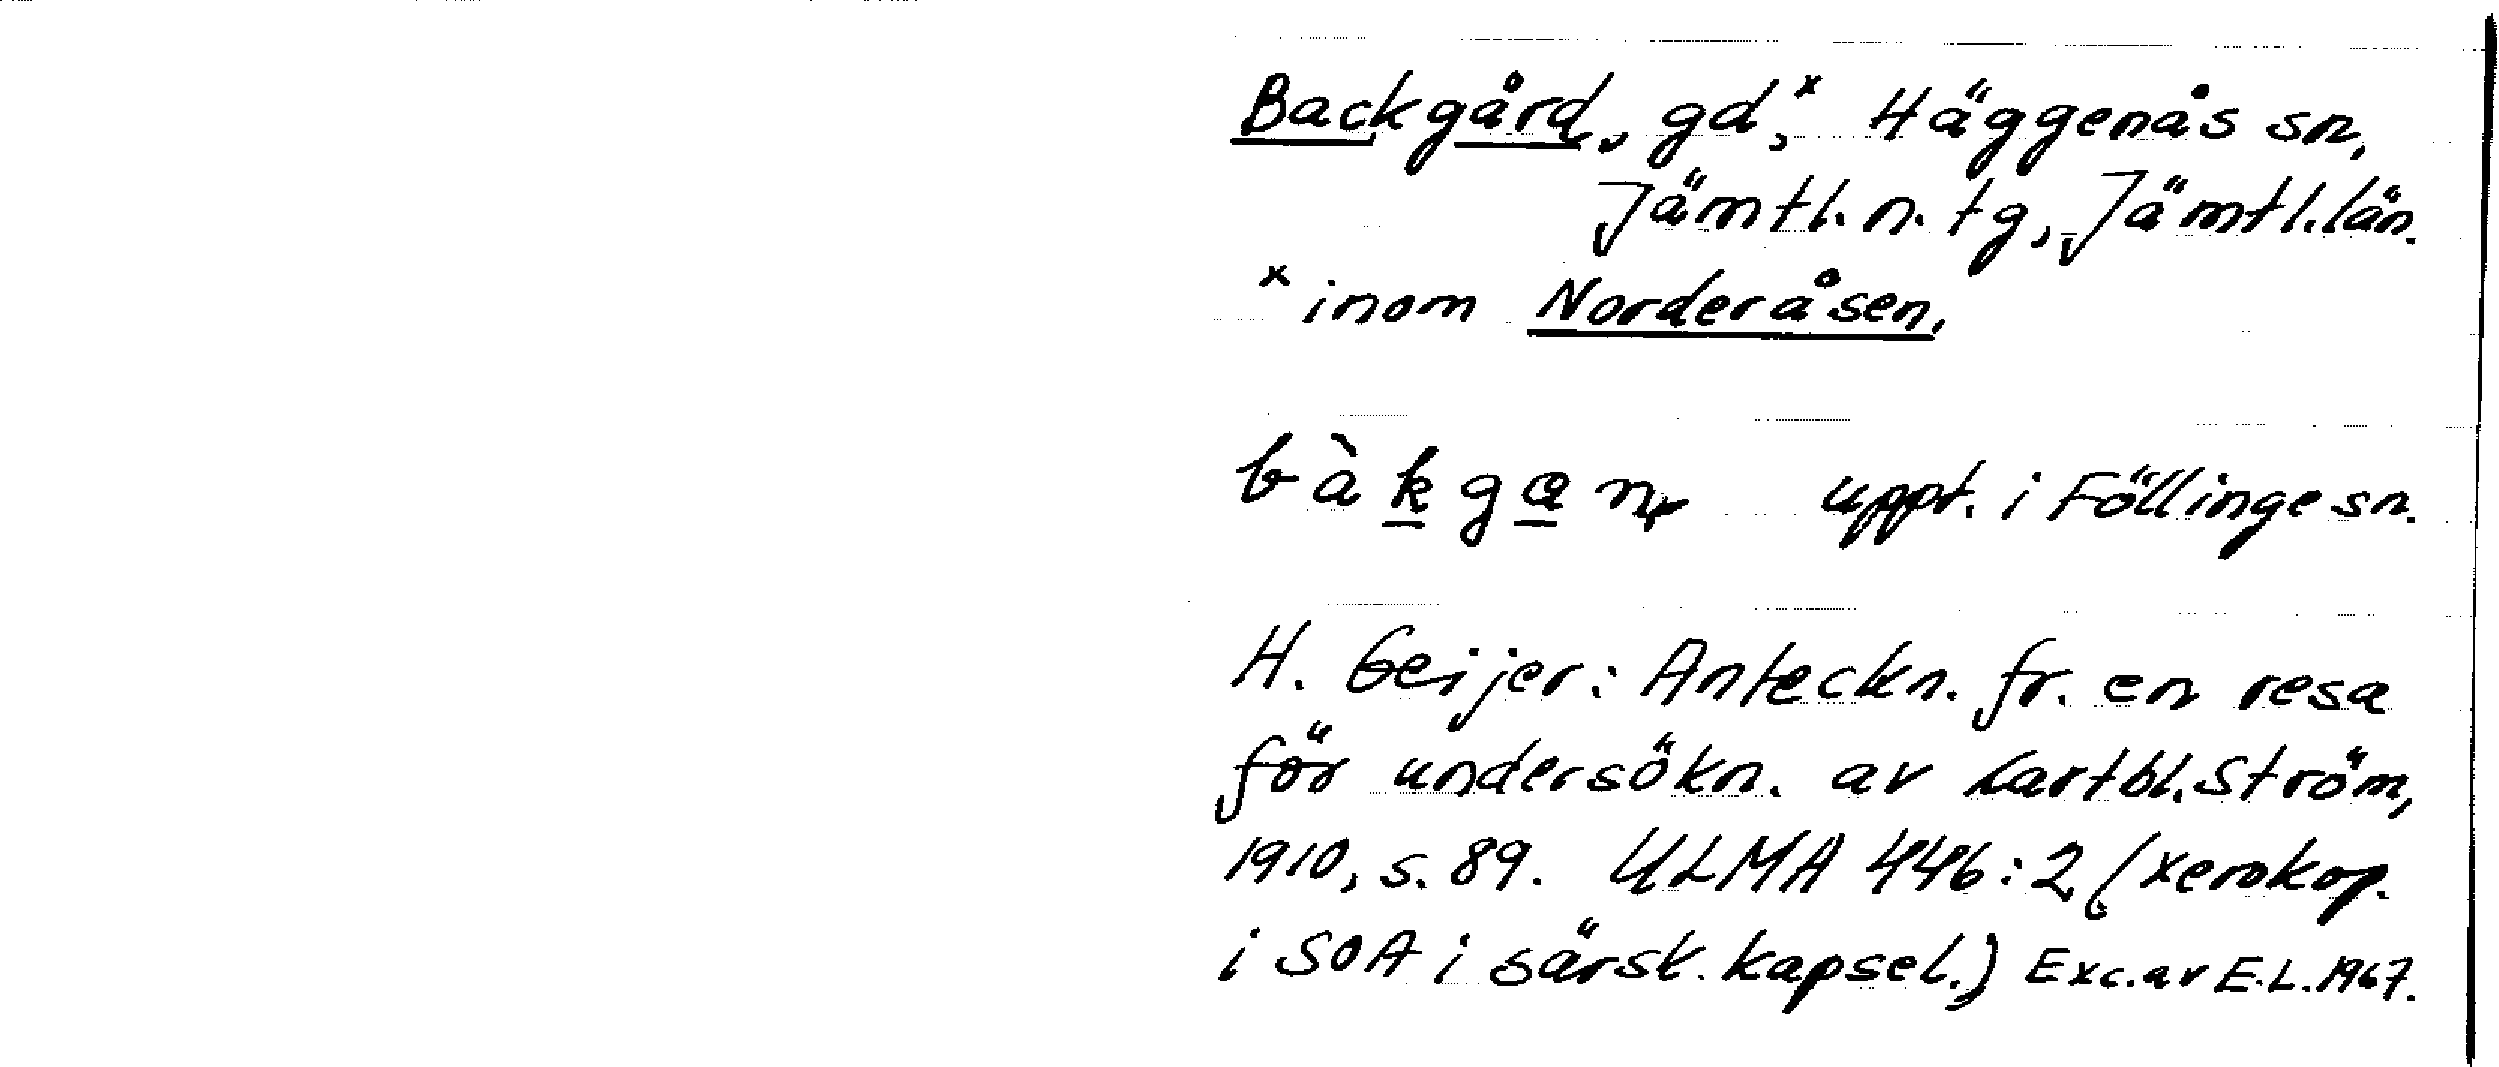 Backgård, gd,ˣ Häggenås sn,
Jämtl. n. tg, Jämtl. län.
ˣ inom Norderåsen.
uppt. i Föllinge sn.
H. Geijer: Anteckn. fr. en resa
för undersökn. av kartbl. Ström,
1910, s. 89. ULMA 446:2 (xerokop.
i SOA i särsk. kapsel.) Exc. av E.L. 1967.